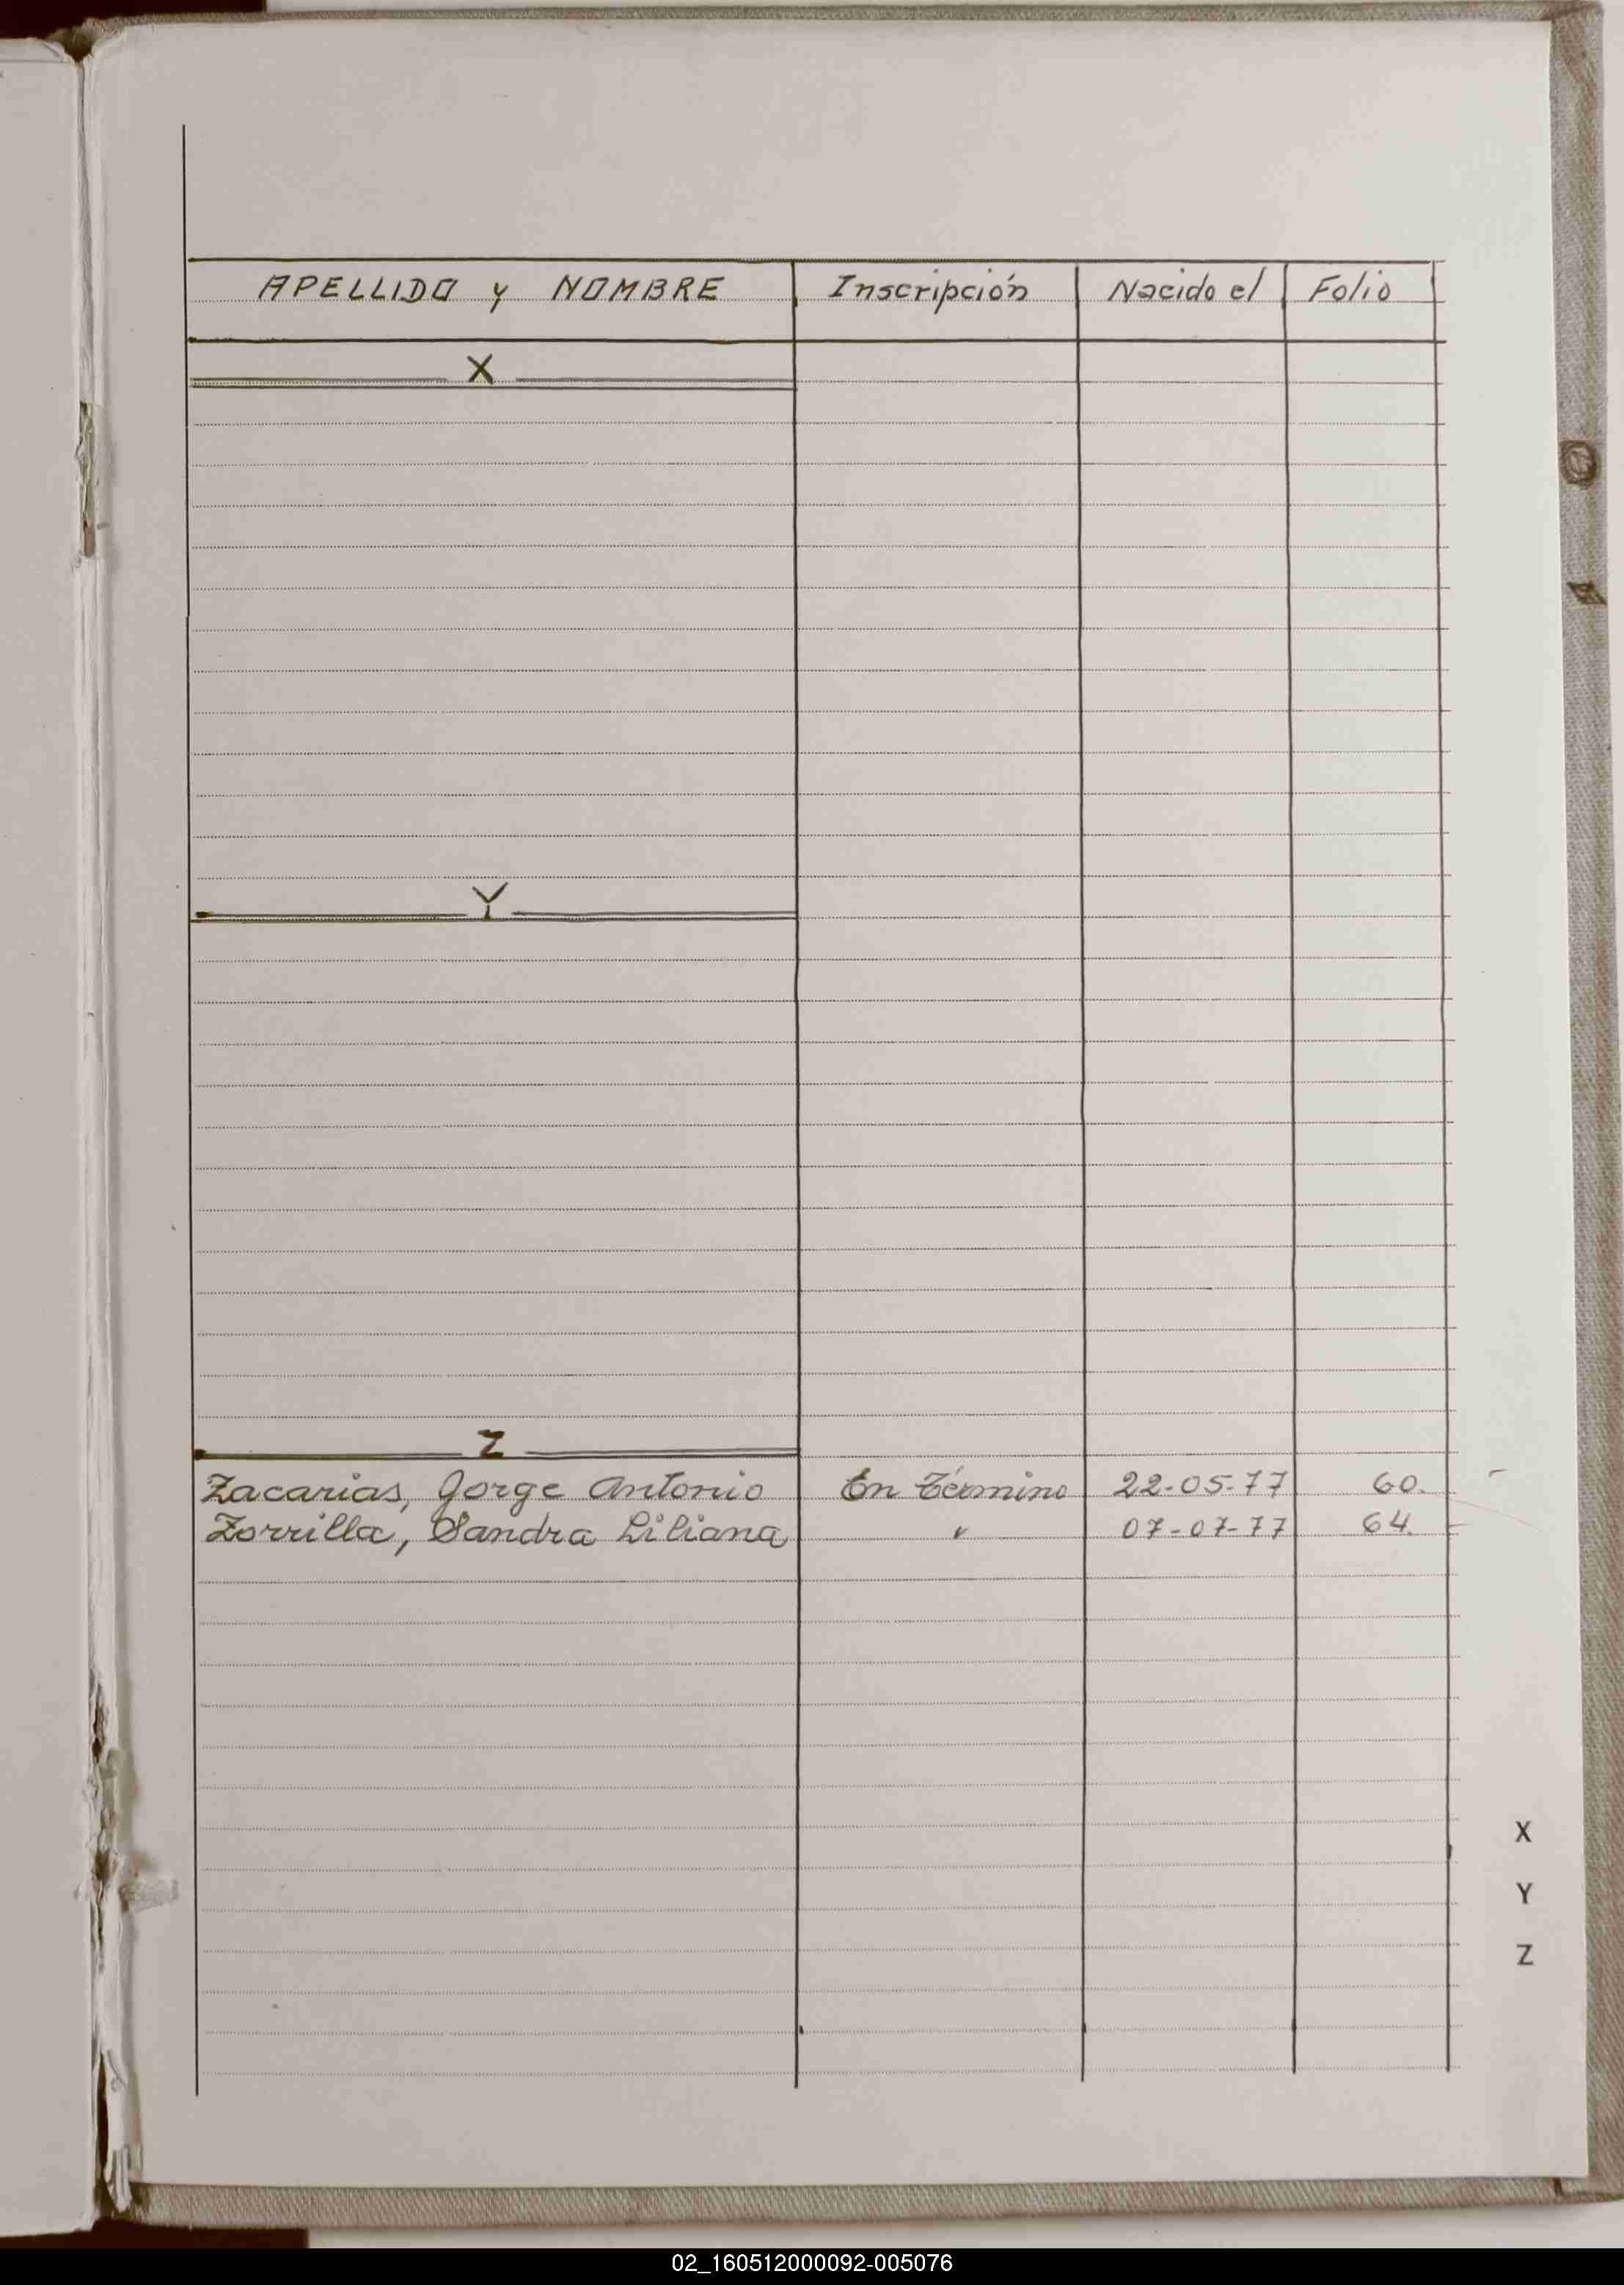 APELLIDO y NOMBRE Inscripción Nacido el Folio
X
Y
Z
Zacarias, Jorge Antonio En Término 22-05-77 60.
Zorrilla, Sandra Liliana " 07-07-77 64.
X
Y
Z
02_160512000092-005076